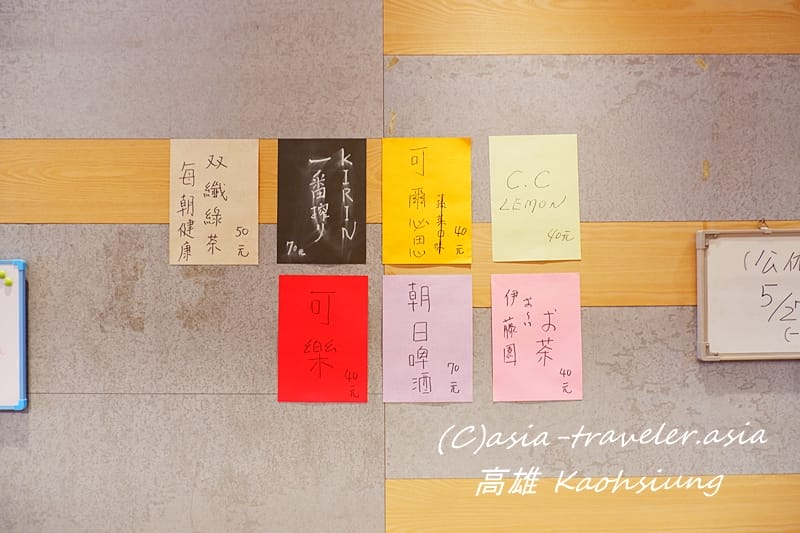 每朝健康
双纖綠茶
50元
KIRIN
一番搾り
70元
可爾必思
40元
C.C
LEMON
40元
可樂
40元
朝日啤酒
70元
お〜い
お茶
伊藤園
40元
(公休
5/27
(一
(C)asia-traveler.asia
高雄 Kaohsiung